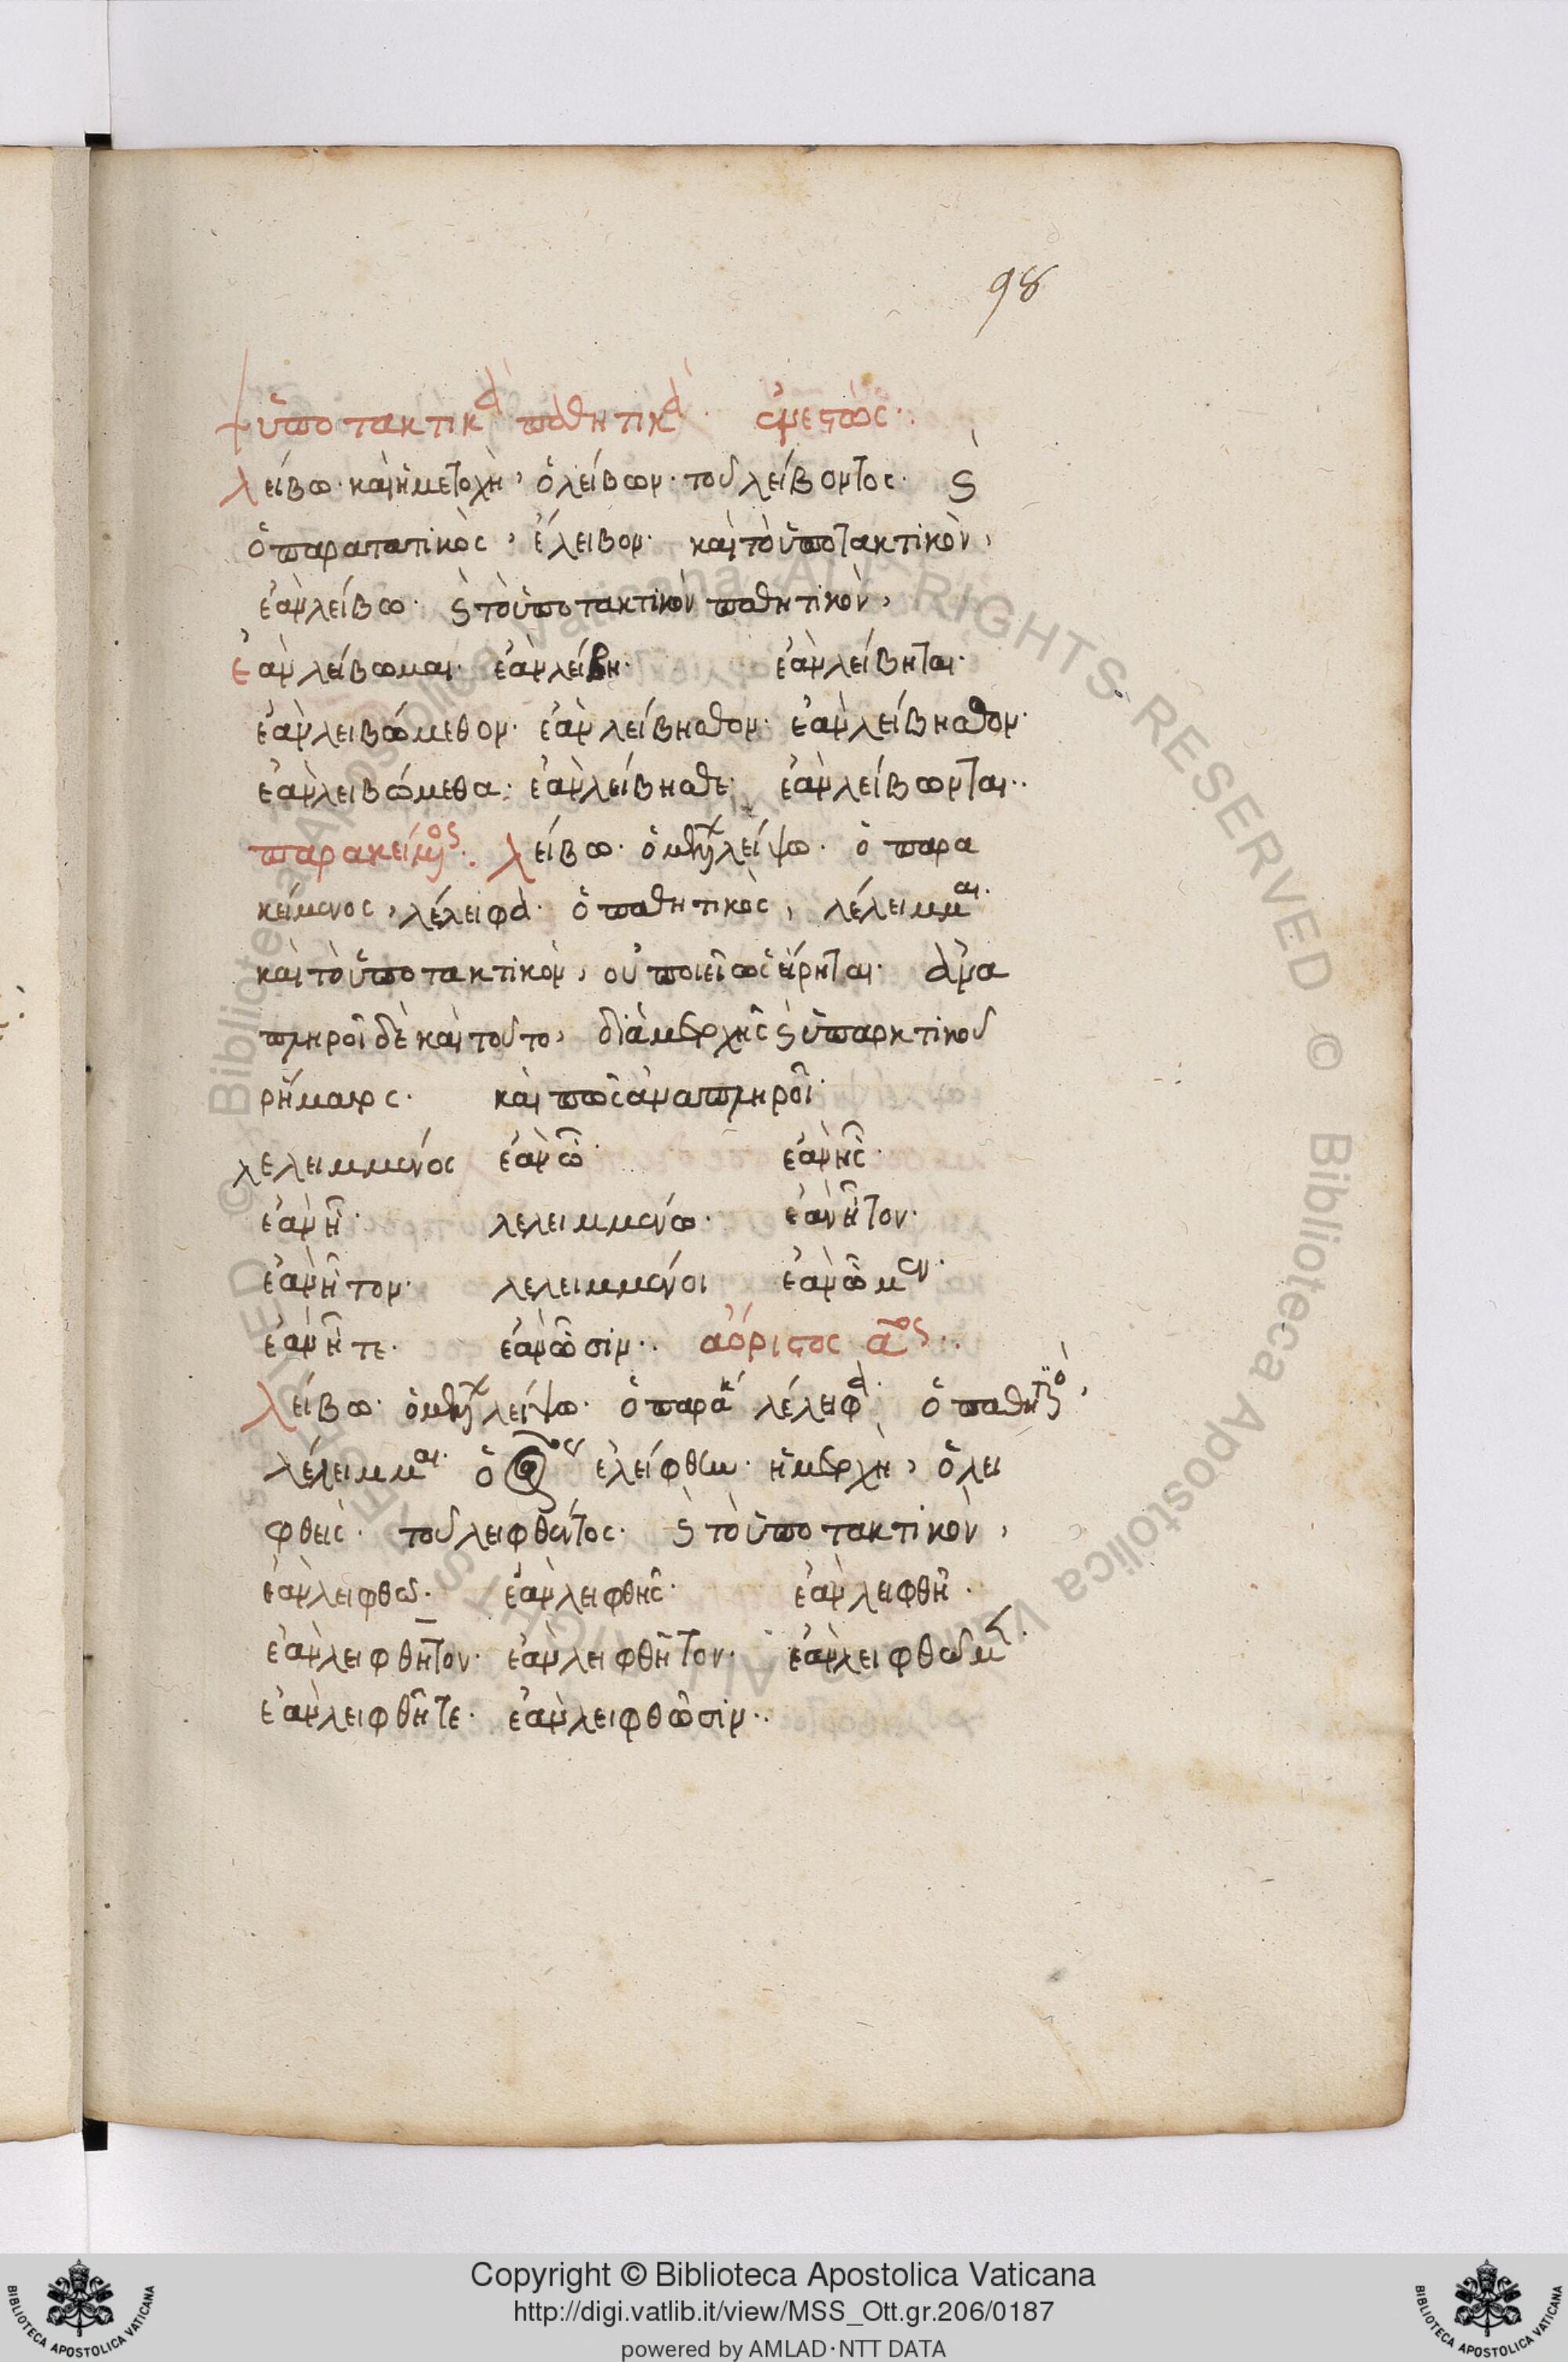 98
ὑποτακτικὰ παθητικά· ἐνεστώς·
λείβω· καὶ ἡ μετοχὴ, ὁ λείβων· τοῦ λείβοντος· ϗ
ὁ παρατατικὸς, ἔλειβον· καὶ τὸ ὑποτακτικὸν,
ἐὰν λείβω· ϗ τὸ ὑποτακτικὸν παθητικὸν,
ἐὰν λείβωμαι· ἐὰν λείβη· ἐὰν λείβηται·
ἐὰν λειβώμεθον· ἐὰν λείβησθον· ἐὰν λείβησθον·
ἐὰν λειβώμεθα· ἐὰν λείβησθε· ἐὰν λείβωνται··
παρακείμενος· λείβω· ὁ μέλλων λείψω· ὁ παρα
κείμενος, λέλειφα· ὁ παθητικὸς, λέλειμμαι·
καὶ τὸ ὑποτακτικὸν, οὐ ποιεῖ ὡς εἴρηται· ἀνα
πληροῖ δὲ καὶ τοῦτο, διὰ μετοχῆς ϗ ὑπαρκτικοῦ
ῥήματος· καὶ πῶς ἀναπληροῖ·
λελειμμένος ἐὰν ὦ· ἐὰν ῆς·
ἐὰν ῆ· λελειμμένω· ἐὰν ῆτον·
ἐὰν ῆτον· λελειμμένοι ἐὰν ὦμεν·
ἐὰν ῆτε· ἐὰν ὦσιν·· ἀόριστος αος··
λείβω· ὁ μέλλων λείψω· ὁ παρακ λέλειφα· ὁ παθητικὸς,
λέλειμμαι· ὁ αος ἐλείφθην· ἡ μετοχὴ, ὁ λει
φθείς· τοῦ λειφθέντος· ϗ τὸ ὑποτακτικὸν,
ἐὰν λειφθῶ· ἐὰν λειφθῆς· ἐὰν λειφθῆ·
ἐὰν λειφθῆτον· ἐὰν λειφθῆτον· ἐὰν λειφθῶμεν·
ἐὰν λειφθῆτε· ἐὰν λειφθῶσιν··
© Biblioteca Apostolica Vaticana ALL RIGHTS RESERVED © Biblioteca Apostolica Vaticana ALL RIGHTS RESERVED
Copyright © Biblioteca Apostolica Vaticana
http://digi.vatlib.it/view/MSS_Ott.gr.206/0187
powered by AMLAD·NTT DATA
BIBLIOTECA APOSTOLICA VATICANA
BIBLIOTECA APOSTOLICA VATICANA